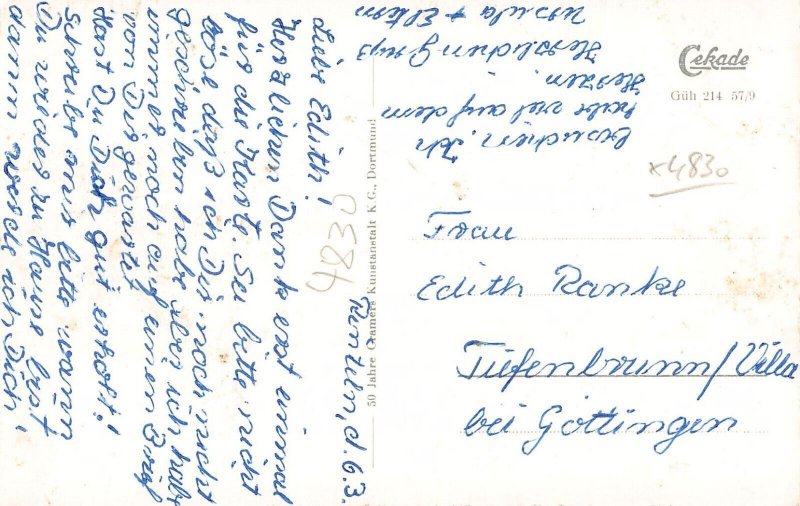 Rinteln, d. 6.3.
Liebe Edith!
Herzlichen Dank erst einmal
für die Karte. Sei bitte nicht
böse, daß ich Dir noch nicht
geschrieben habe aber ich habe
immer noch auf einen Brief
von Dir gewartet.
Hast Du Dich gut erholt!
Schreibe uns bitte wann
Du wieder zu Hause bist
dann werde ich Dich
besuchen. Ich
habe viel auf dem
Herzen.
Herzlichen Gruß
Ursula + Eltern
4830
50 Jahre Cramers Kunstanstalt K.G., Dortmund
Cekade
Güh 214 57/9
x4830
Frau
Edith Ranke
Tiefenbrunn/Villa
bei Göttingen